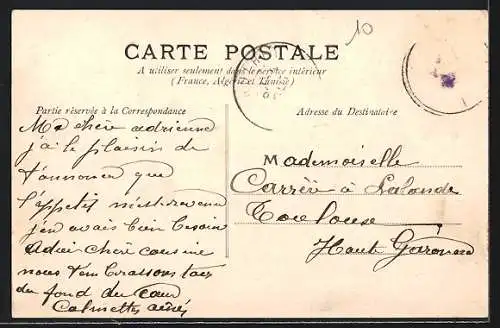 10
CARTE POSTALE
A utiliser seulement dans le service intérieur
(France, Algérie et Tunisie)
Partie réservée à la Correspondance
Adresse du Destinataire
Ma chère adrienne
j'ai le plaisir de
t'annoncer que
l'appetit m'est revenu
j'en avais bien besoin
Adieu chère cousine
nous t'embrassons tous
du fond du cœur
Calmettes aînés
Mademoiselle
Carrère à Lalande
Toulouse
Haute Garonne